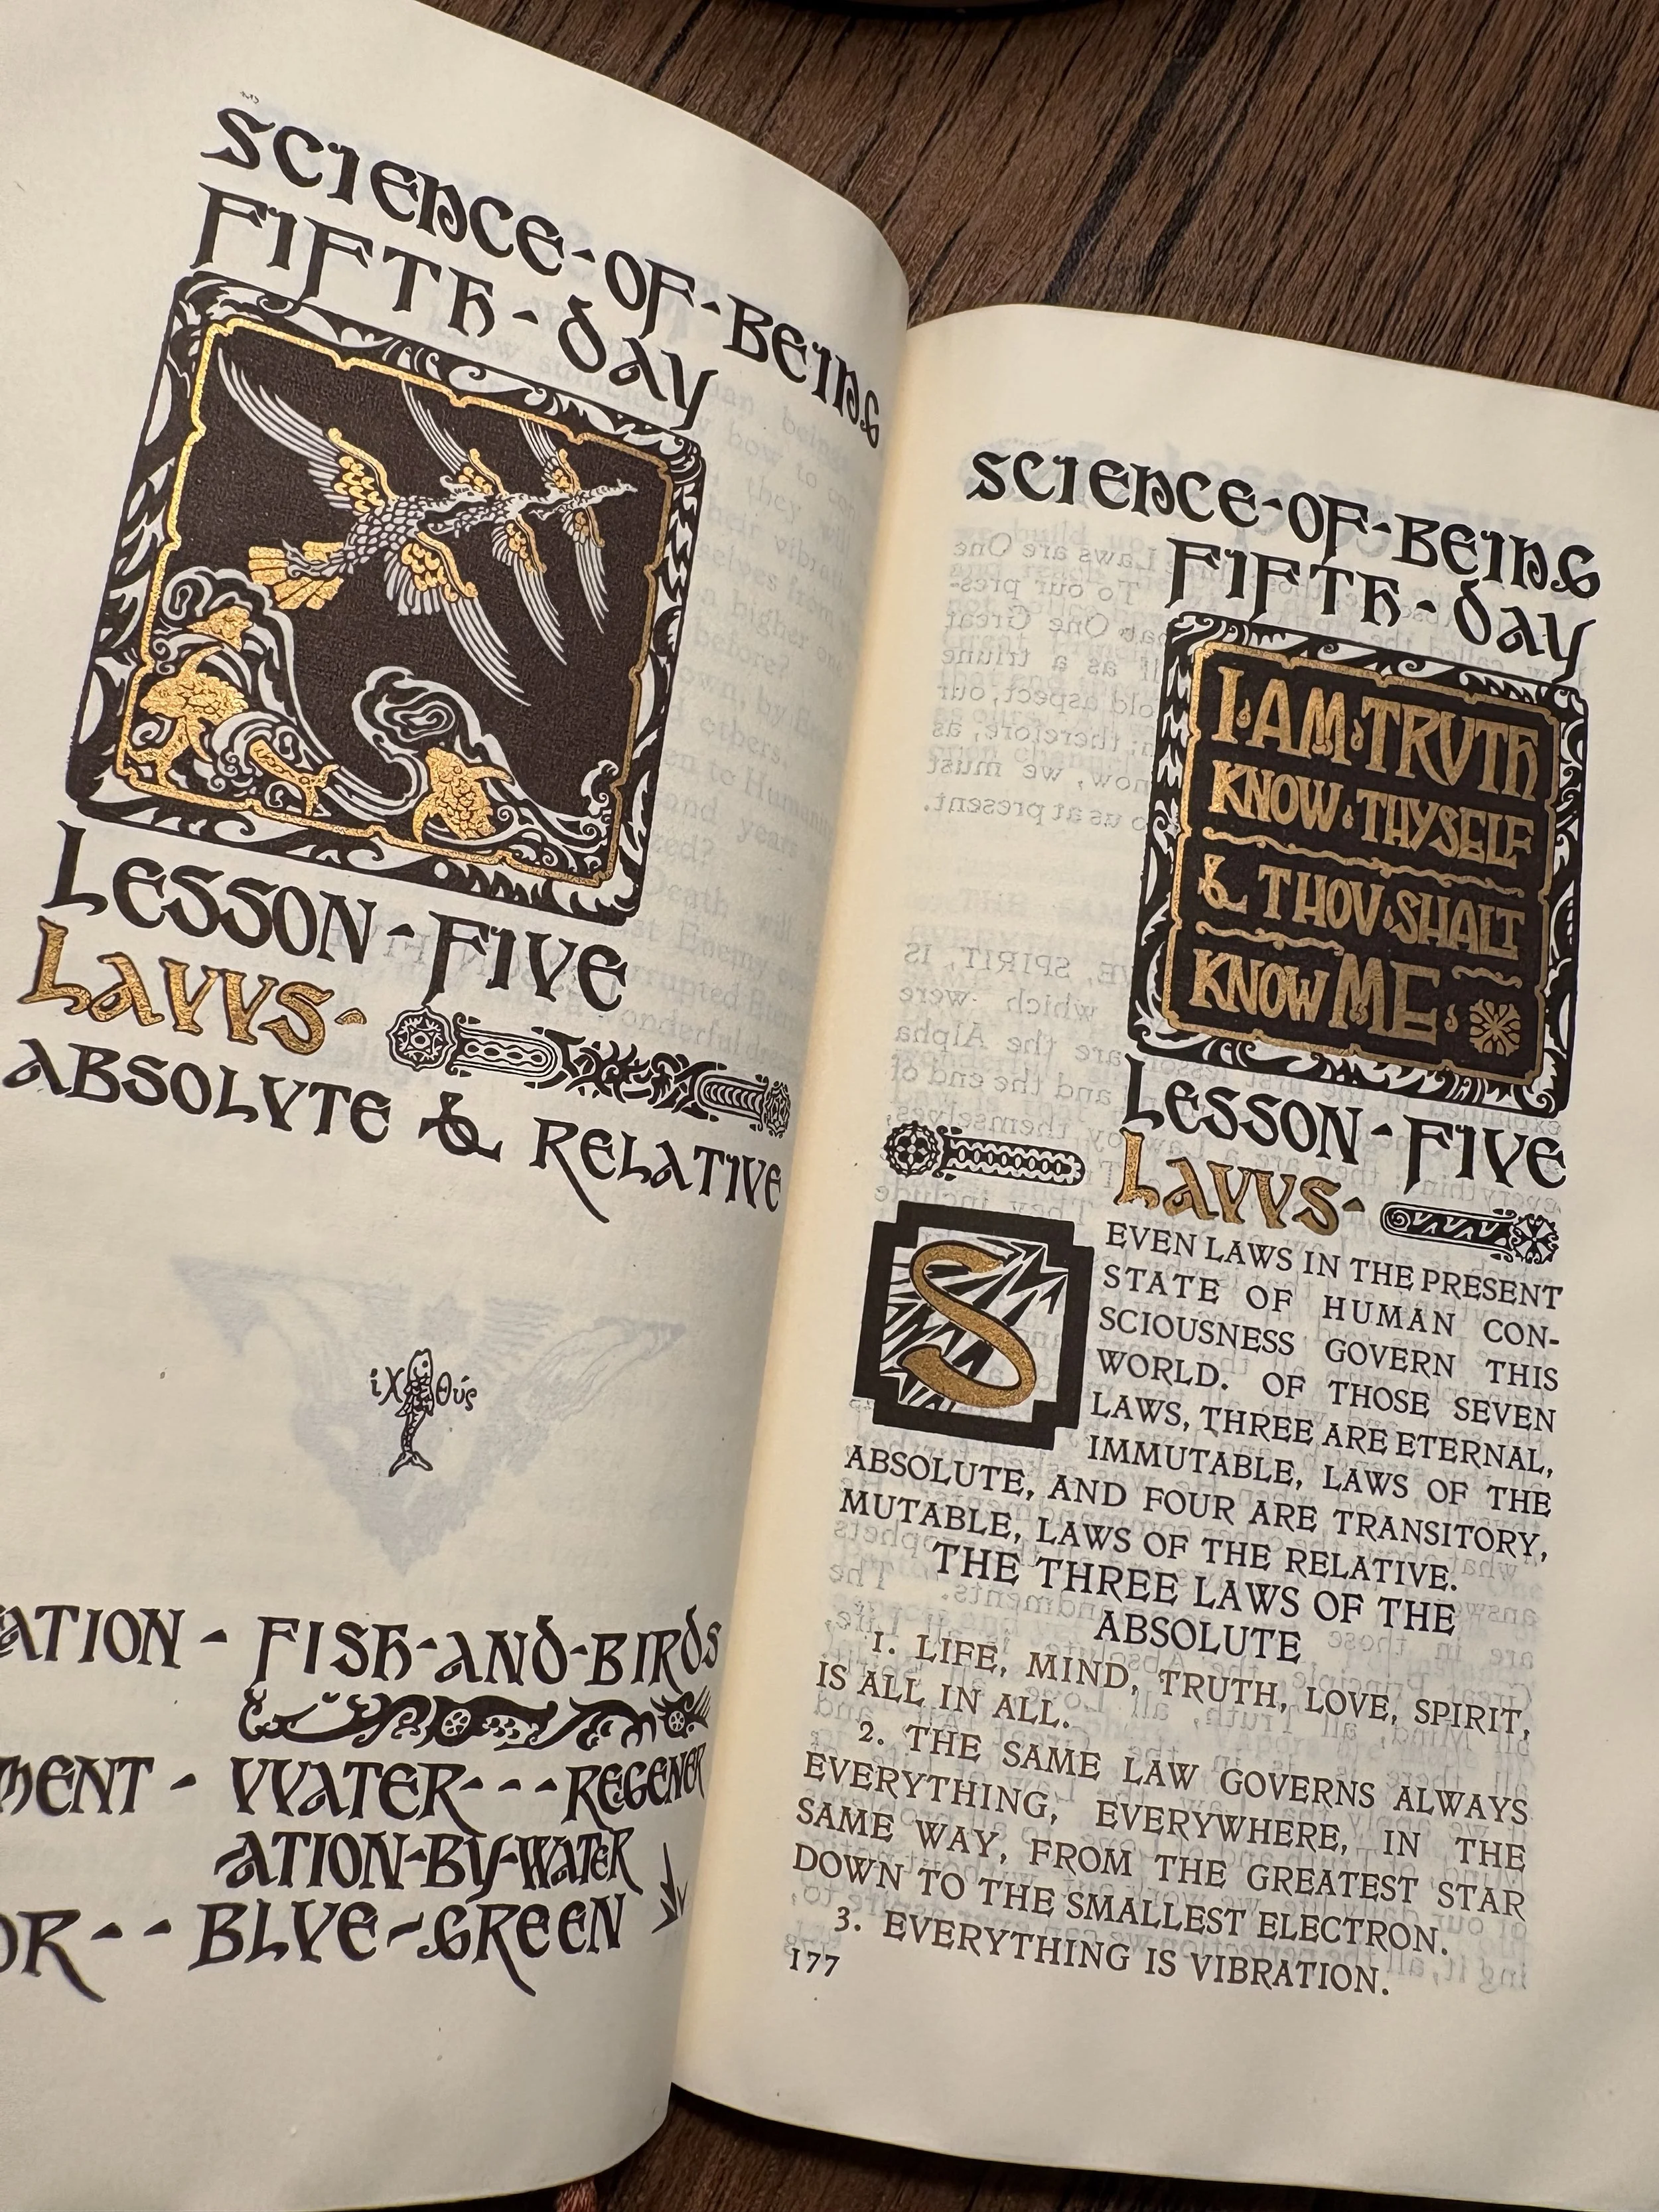 SCIENCE-OF-BEING
FIFTH-DAY
LESSON-FIVE
LAWS-
ABSOLVTE & RELATIVE
ἰχθύς
ATION - FISH-AND-BIRDS
MENT - WATER---REGENER
ATION-BY-WATER
OR-- BLVE-GREEN
SCIENCE-OF-BEING
FIFTH-DAY
I·AM·TRVTH
KNOW·THYSELF
& THOV·SHALT
KNOW ME
LESSON-FIVE
LAWS-
SEVEN LAWS IN THE PRESENT
STATE OF HUMAN CON-
SCIOUSNESS GOVERN THIS
WORLD. OF THOSE SEVEN
LAWS, THREE ARE ETERNAL,
IMMUTABLE, LAWS OF THE
ABSOLUTE, AND FOUR ARE TRANSITORY,
MUTABLE, LAWS OF THE RELATIVE.
THE THREE LAWS OF THE
ABSOLUTE
1. LIFE, MIND, TRUTH, LOVE, SPIRIT,
IS ALL IN ALL.
2. THE SAME LAW GOVERNS ALWAYS
EVERYTHING, EVERYWHERE, IN THE
SAME WAY, FROM THE GREATEST STAR
DOWN TO THE SMALLEST ELECTRON.
3. EVERYTHING IS VIBRATION.
177